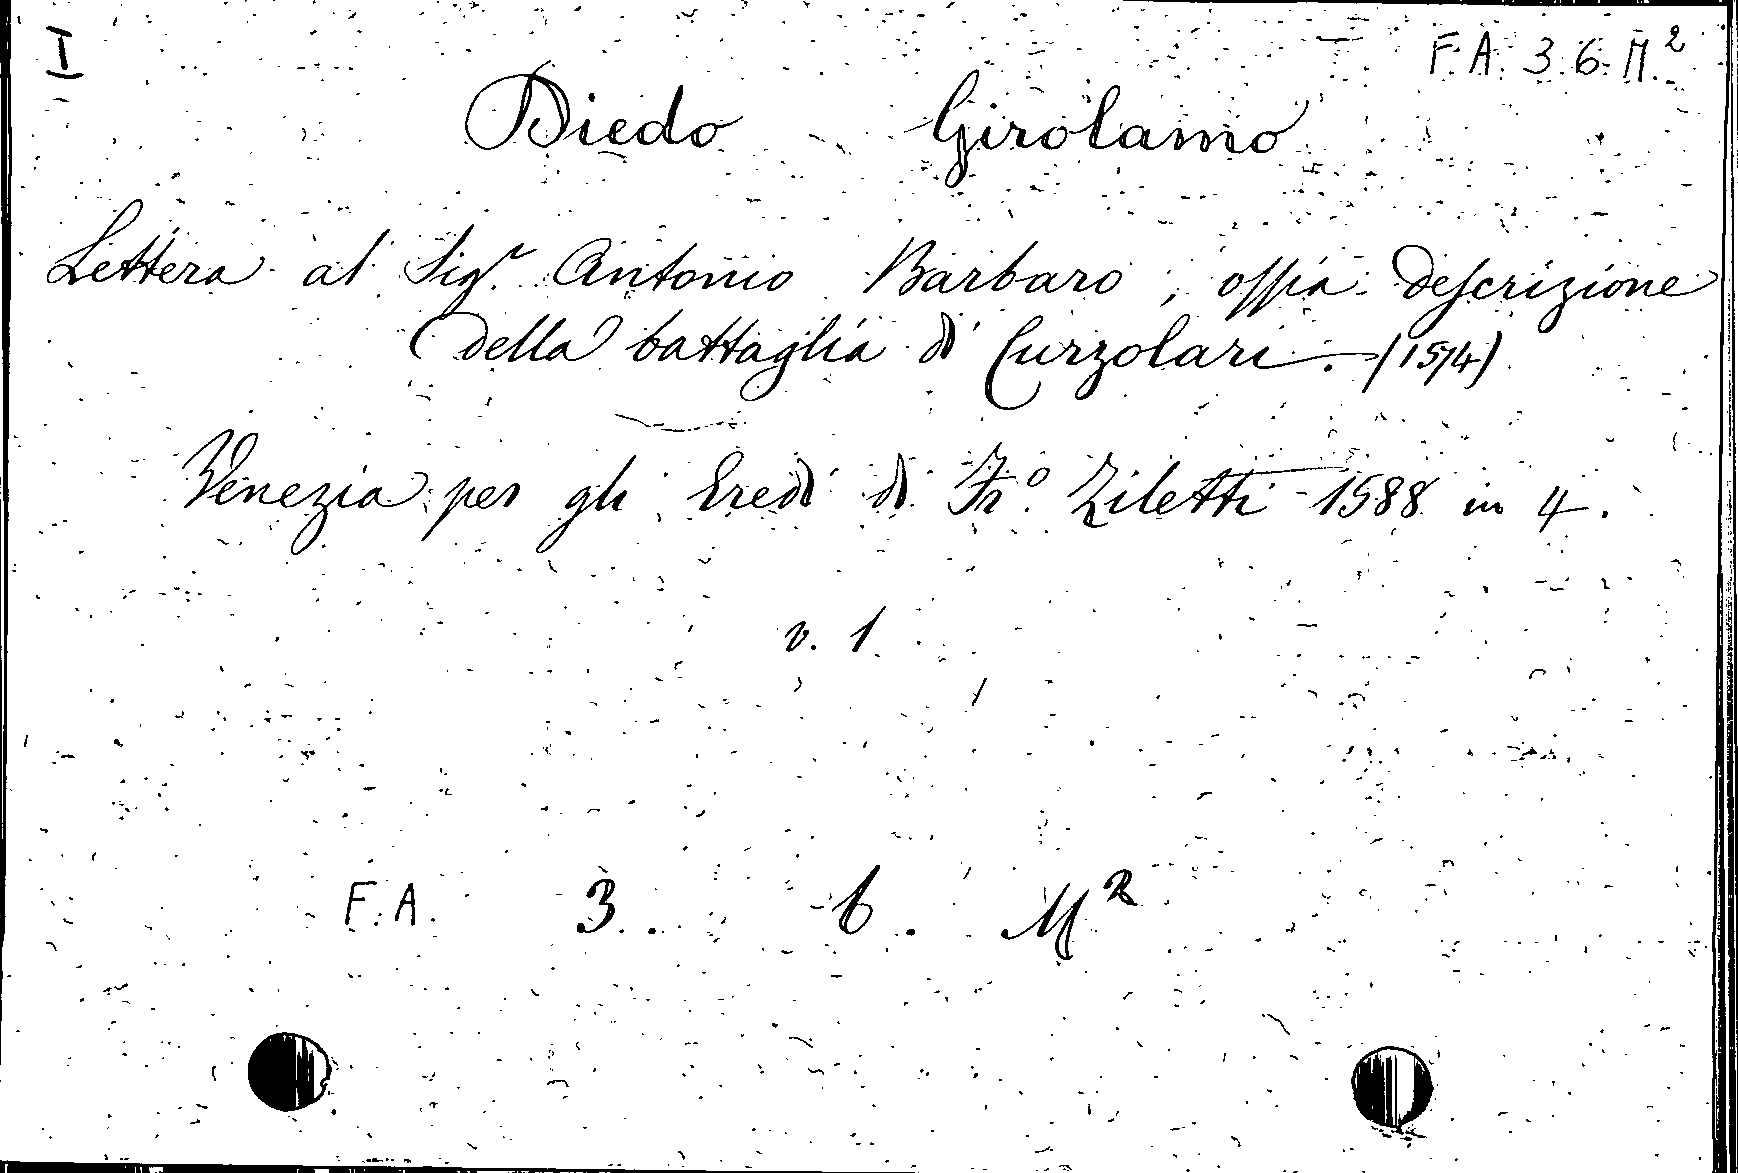 I
F. A. 3. 6. M.²
Diedo Girolamo
Lettera al Sigr. Antonio Barbaro, ossia descrizione
della battaglia di Curzolari. (1574)
Venezia per gli Eredi di Fr.º Ziletti 1588 in 4.
v. 1
F. A. 3. 6. M²